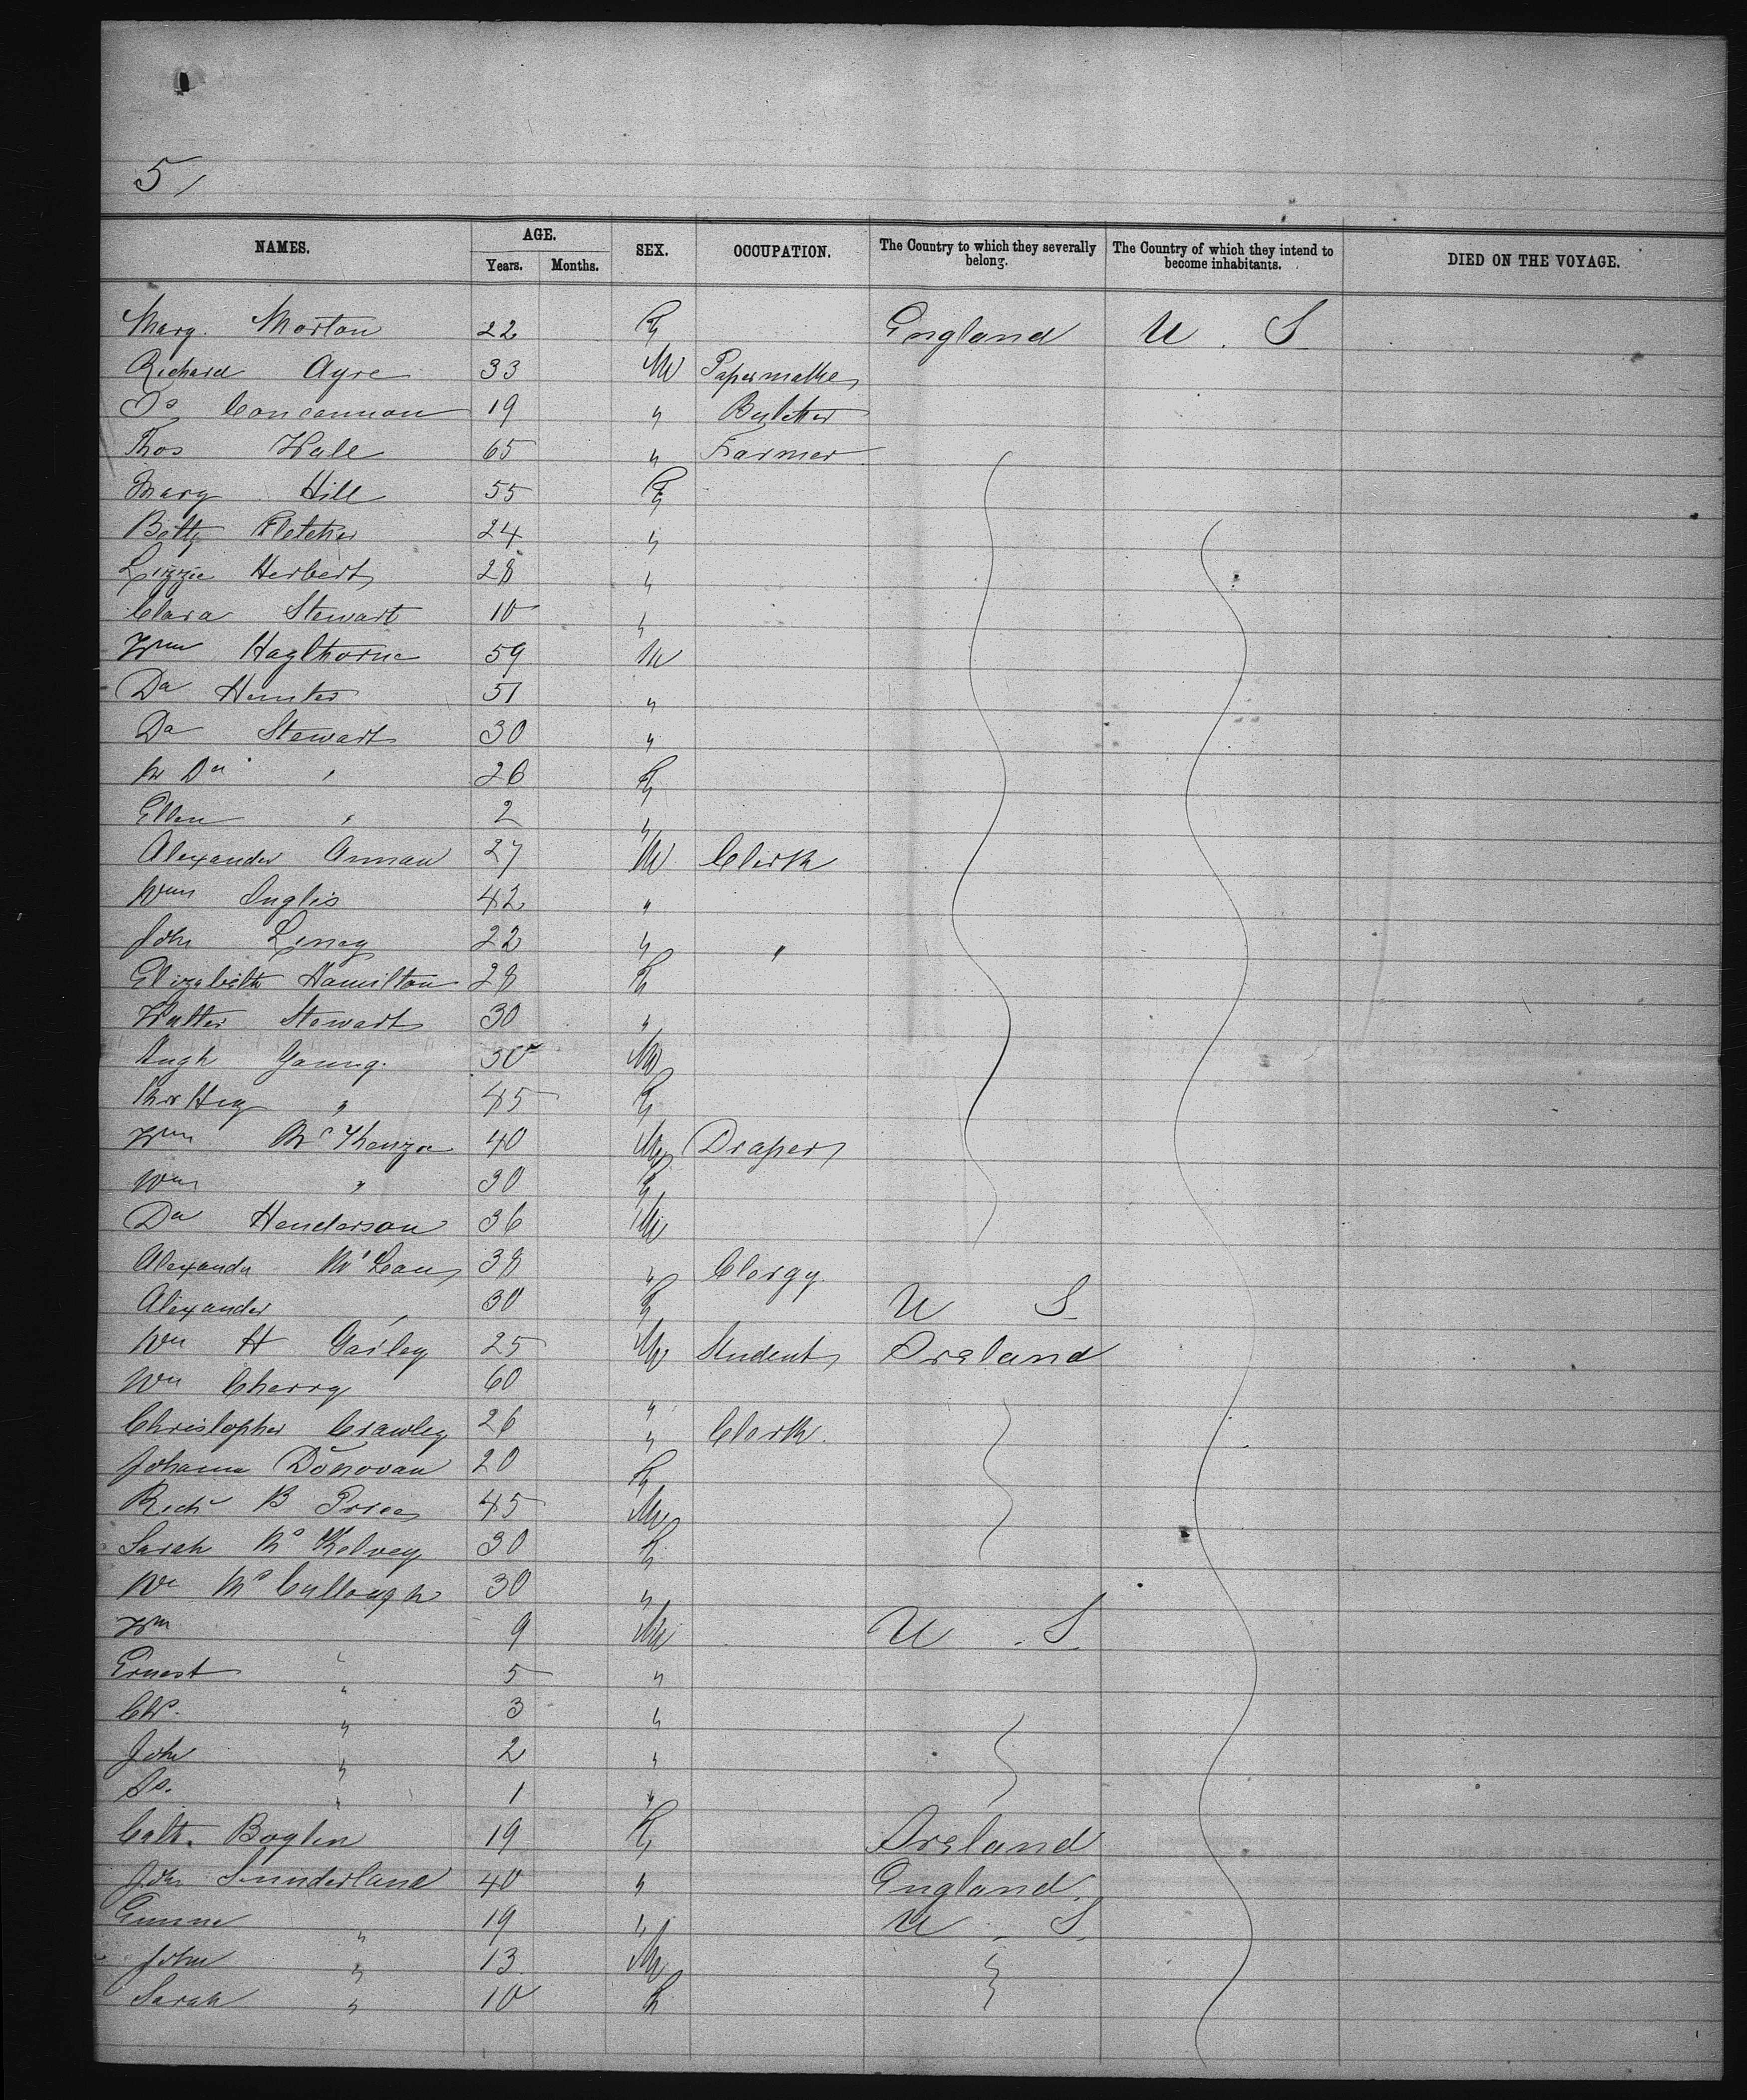 5/
NAMES. AGE. Years. Months. SEX. OCCUPATION. The Country to which they severally belong. The Country of which they intend to become inhabitants. DIED ON THE VOYAGE.
Marg. Morton 22 F England U. S
Richard Ayre 33 M Papermaker
Concannon 19 " Butcher
Thos 65 " Farmer
Mary Hill 55 F
Betty Fletcher 24 "
Lizzie Herbert 28 "
Clara Stewart 10 "
Wm Haglthorne 59 M
Da Hunter 51 "
Da Stewart 30 "
Da " 26 F
Ellen " 2 "
Alexander Annan 27 M Clerk
Wm Inglis 42 "
John 22 " "
Elizabeth Hamilton 28 F
Walter Stewart 30 "
Hugh Young. 30 M
" 45 F
Wm McKenzie 40 M Draper
Wm " 30 F
Da Henderson 36 M
Alexander McLean 38 " Clergy.
Alexander " 30 F U S
Wm H 25 M Student Ireland
Wm Cherry 60 "
Christopher Crawley 26 " Clerk.
Johanna Donovan 20 F
Richd B Price 45 M
Sarah McKelvey 30 F
McCullough 30 "
Wm " 9 M U. S.
Ernest " 5 "
" 3 "
John " 2 "
" 1 "
Cath. Boglin 19 F Ireland
John Sunderland 40 " England.
" 19 " U. S.
John " 13 M
Sarah " 10 F